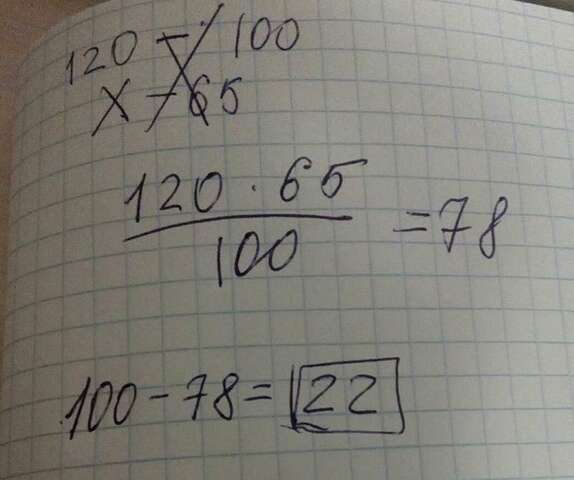 120 - 100
x - 65
120 · 65
100
= 78
100 - 78 = 22